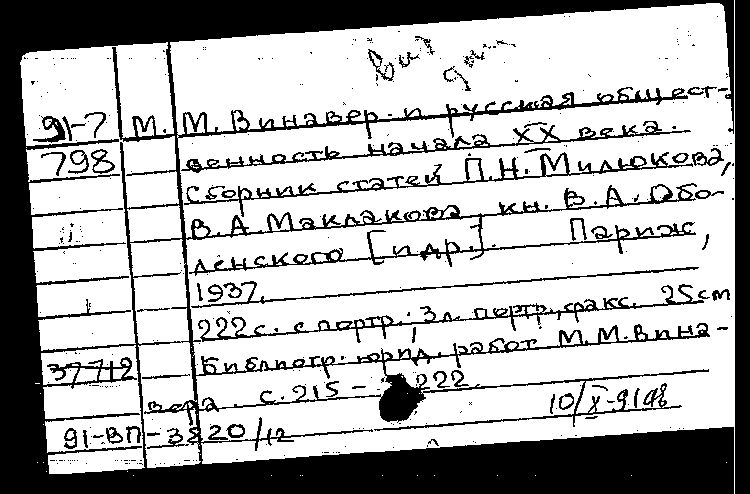 91-7 М. М. Винавер и русская общест-
798 венность начала XX века.
Сборник статей П.Н. Милюкова,
В.А. Маклакова, кн. В.А. Обо-
ленского [и др.]. Париж,
1937.
222 с. с портр.; 3 л. портр., факс. 25 см
37712 Библиогр. юрид. работ М.М. Вина-
вера. с. 215 - 222.
10/X-91
91-ВП-3820/12